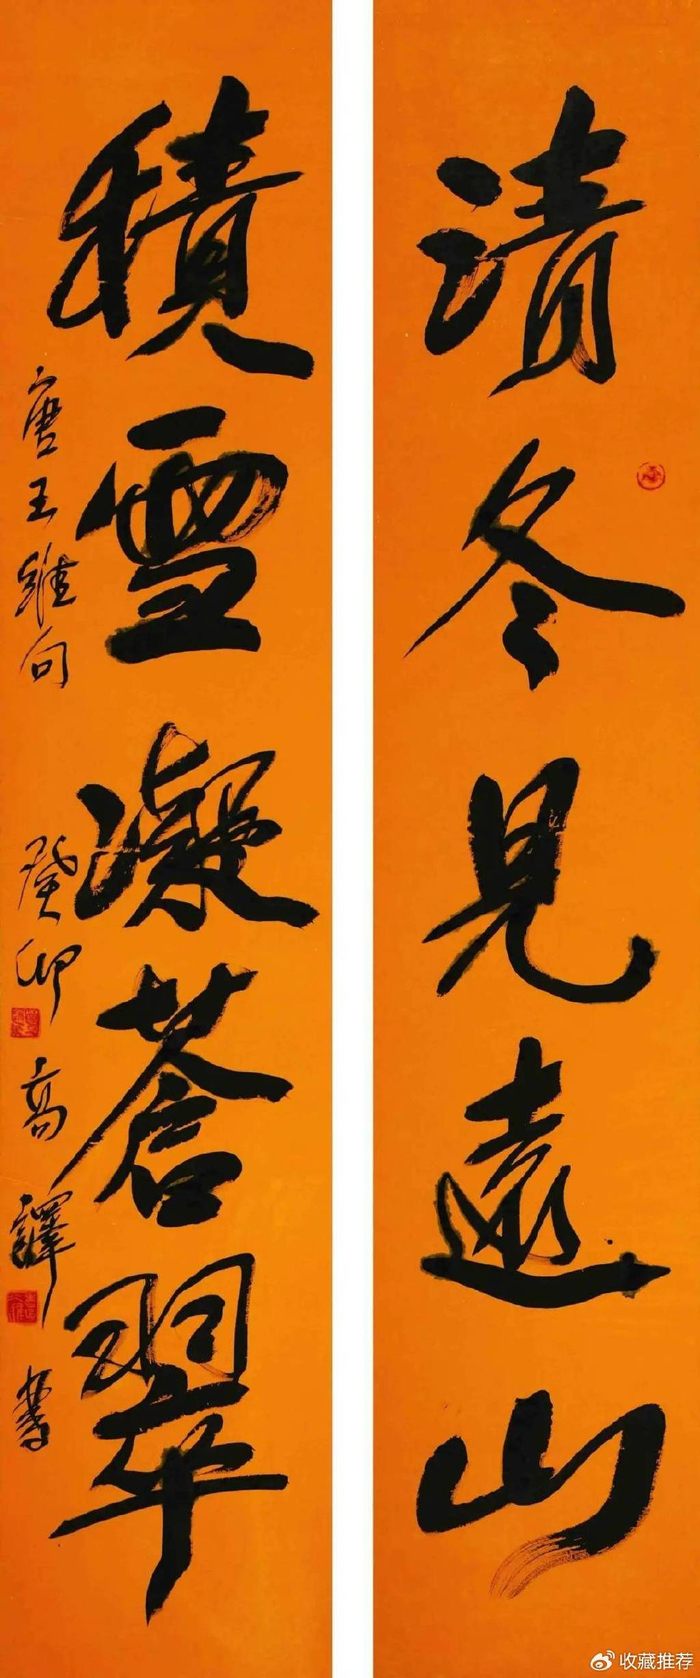 清冬見遠山
積雪凝蒼翠
唐王維句 癸卯 高譯書
收藏推荐